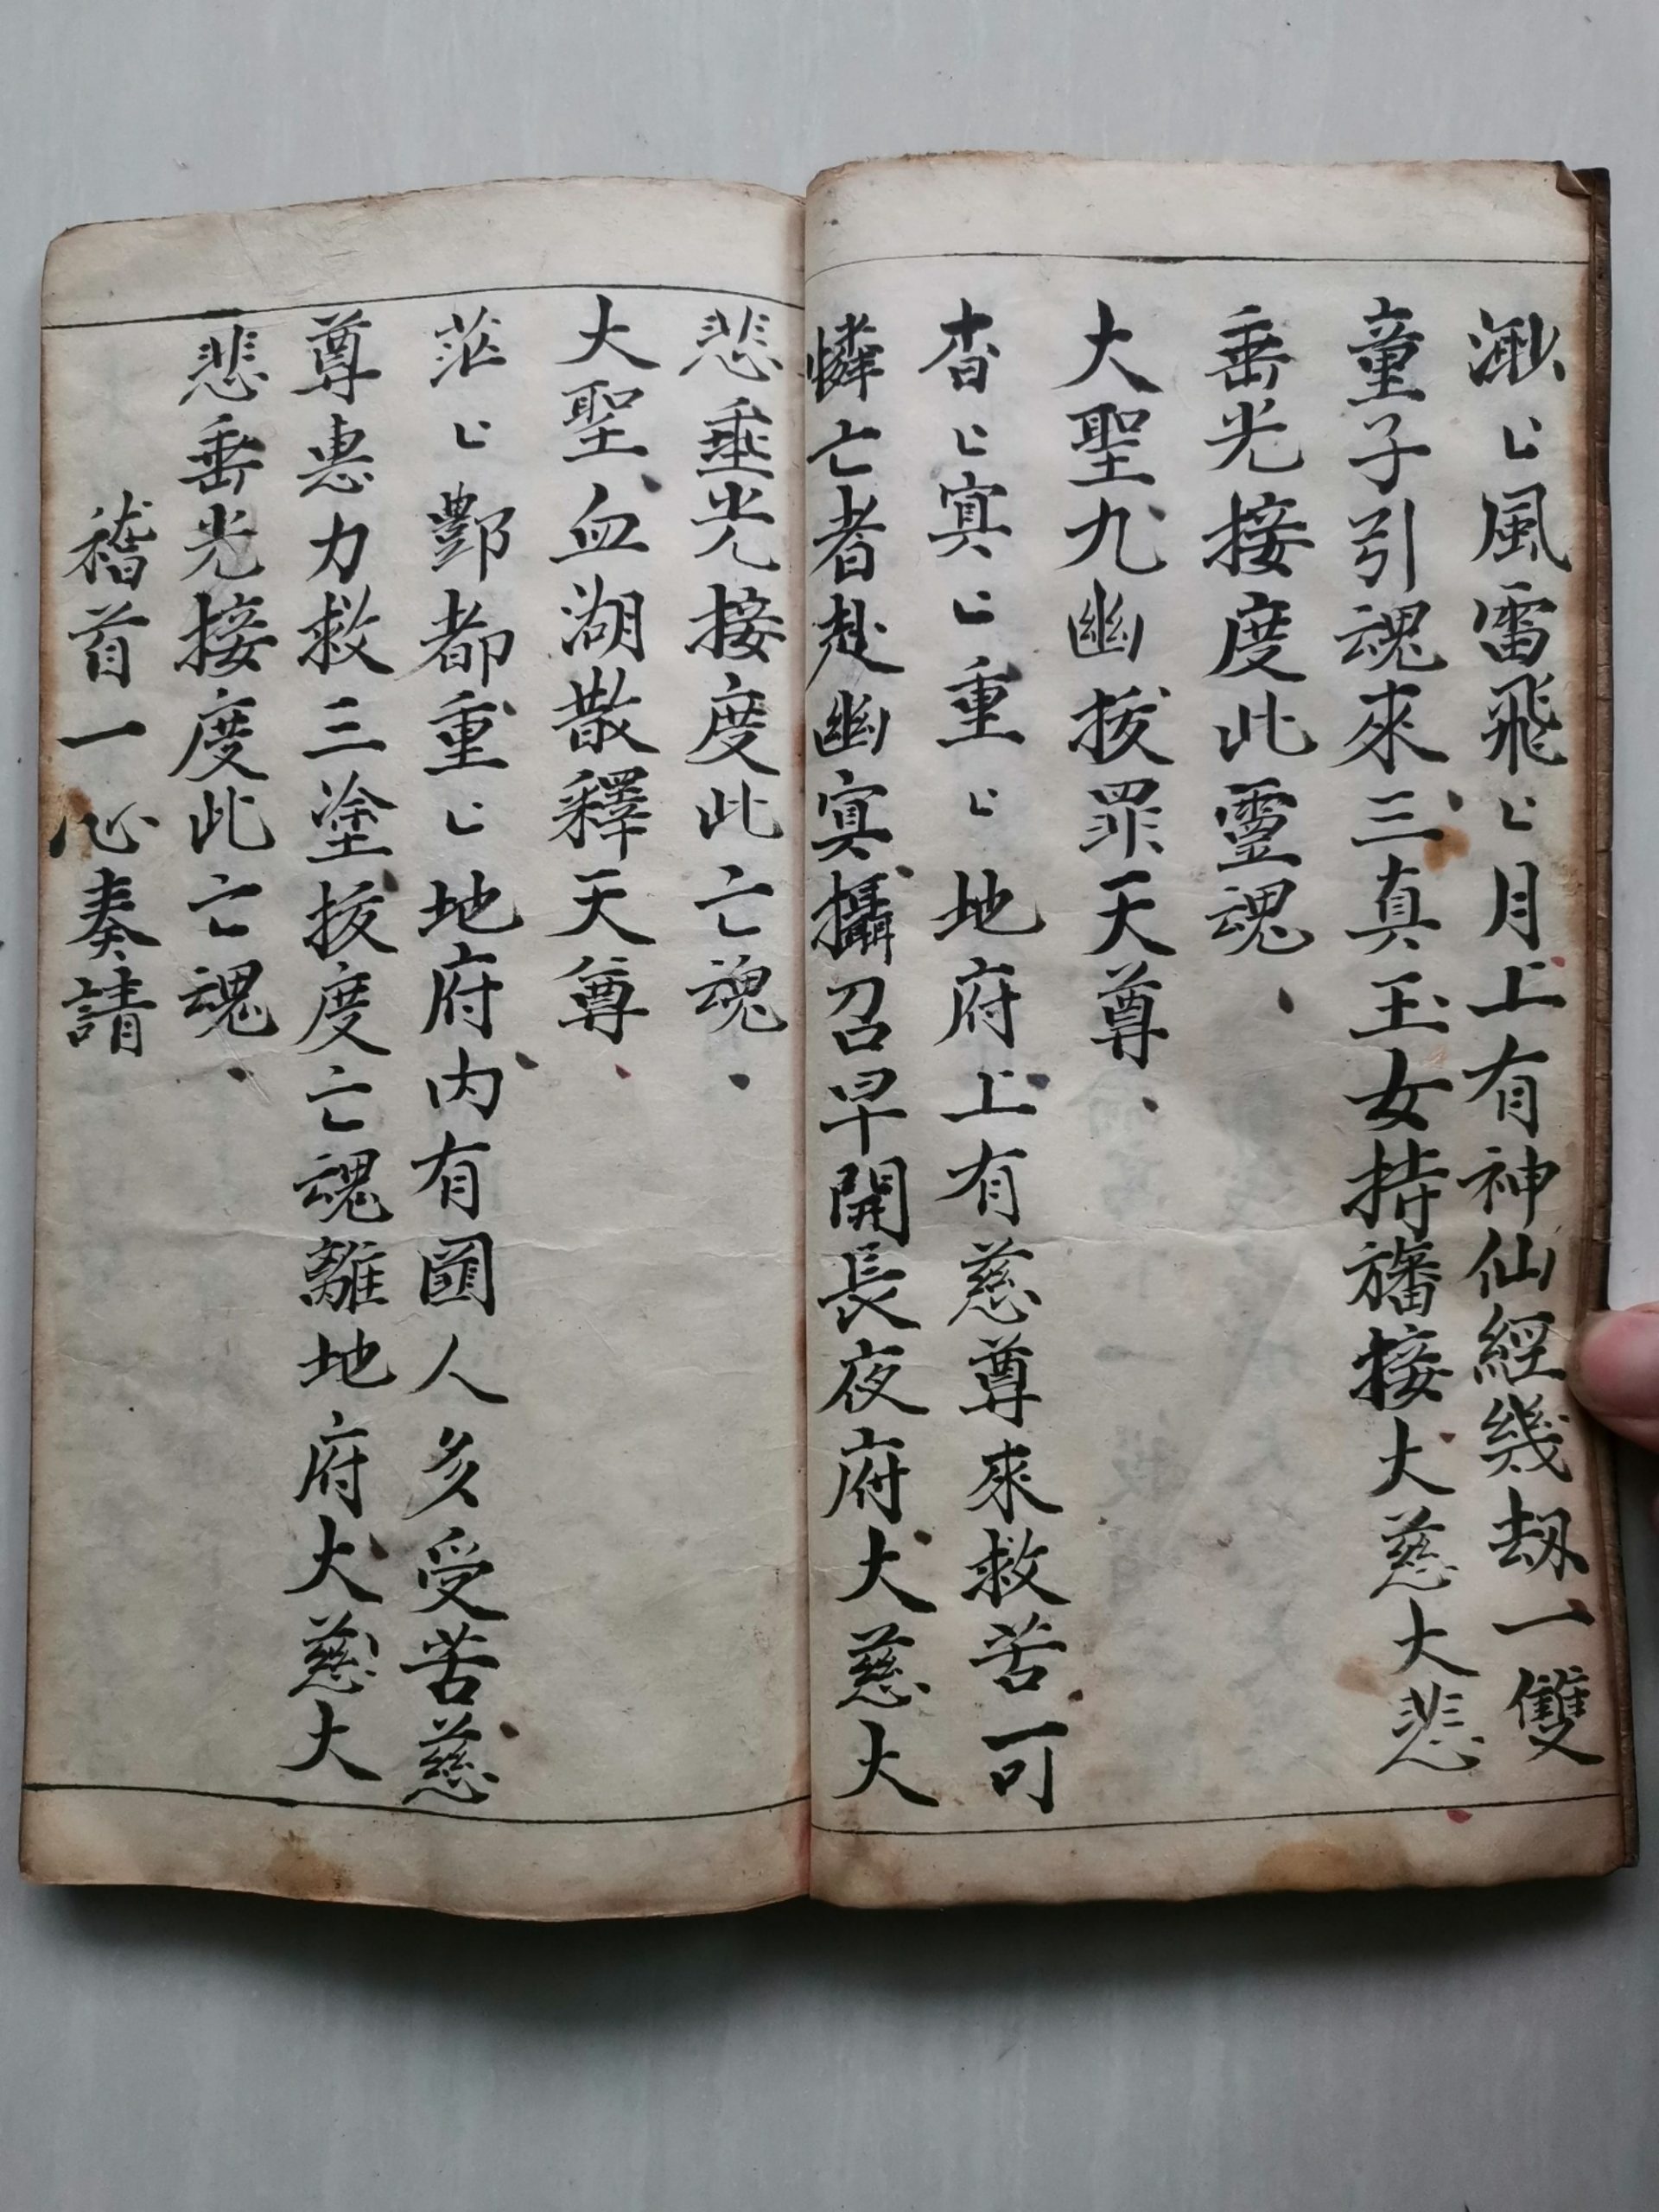 渺〻風雷飛〻月上有神仙經幾劫一雙
童子引魂來三真玉女持旛接大慈大悲
垂光接度此靈魂
大聖九幽拔罪天尊
杳〻冥〻重〻地府上有慈尊來救苦可
憐亡者赴幽冥攝召早開長夜府大慈大
悲垂光接度此亡魂
大聖血湖散釋天尊
茫〻酆都重〻地府内有囬人多受苦慈
尊惠力救三塗拔度亡魂離地府大慈大
悲垂光接度此亡魂
稽首一心奏請